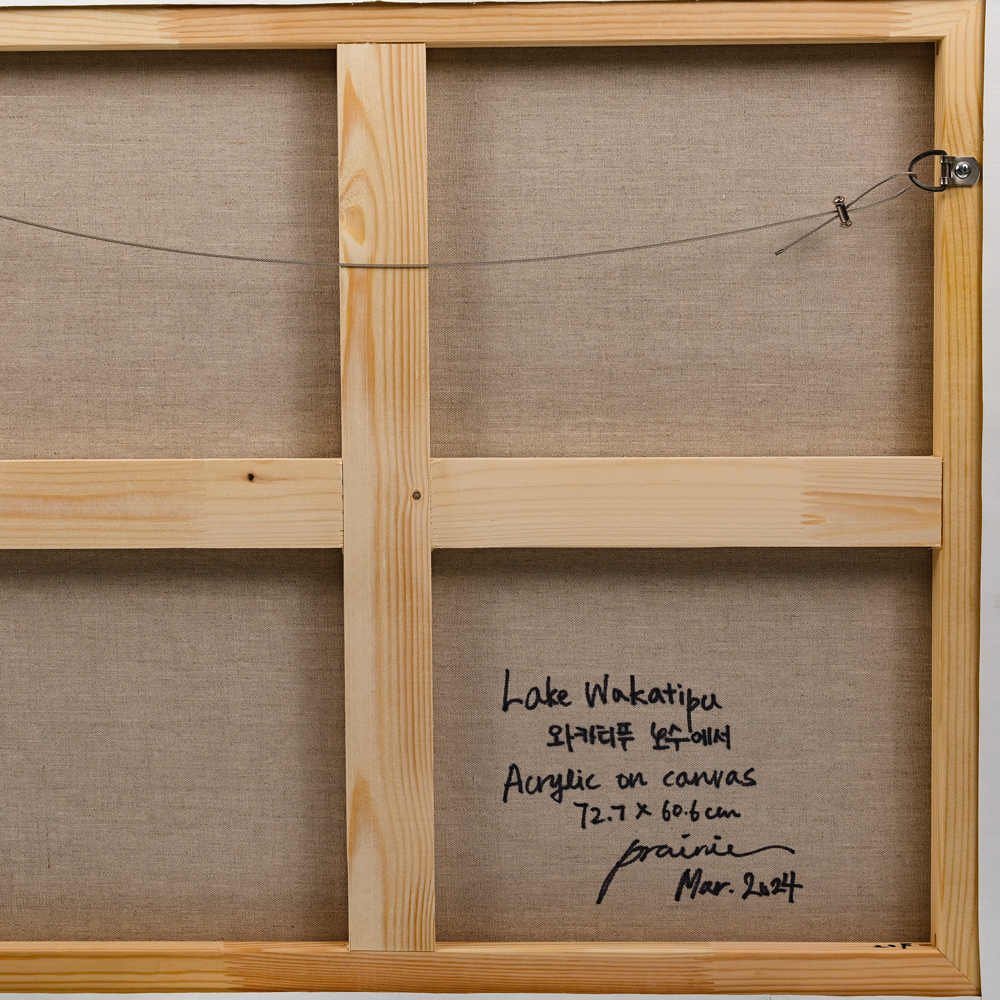 Lake Wakatipu
와카티푸 호수에서
Acrylic on canvas
72.7 x 60.6 cm
prairie
Mar. 2024